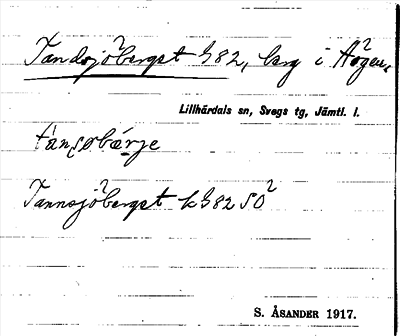 Tandsjöberget G82, berg i Hogen,
Lillhärdals sn, Svegs tg, Jämtl. l.
Tannsjöberget k G82 SO²
S. ÅSANDER 1917.